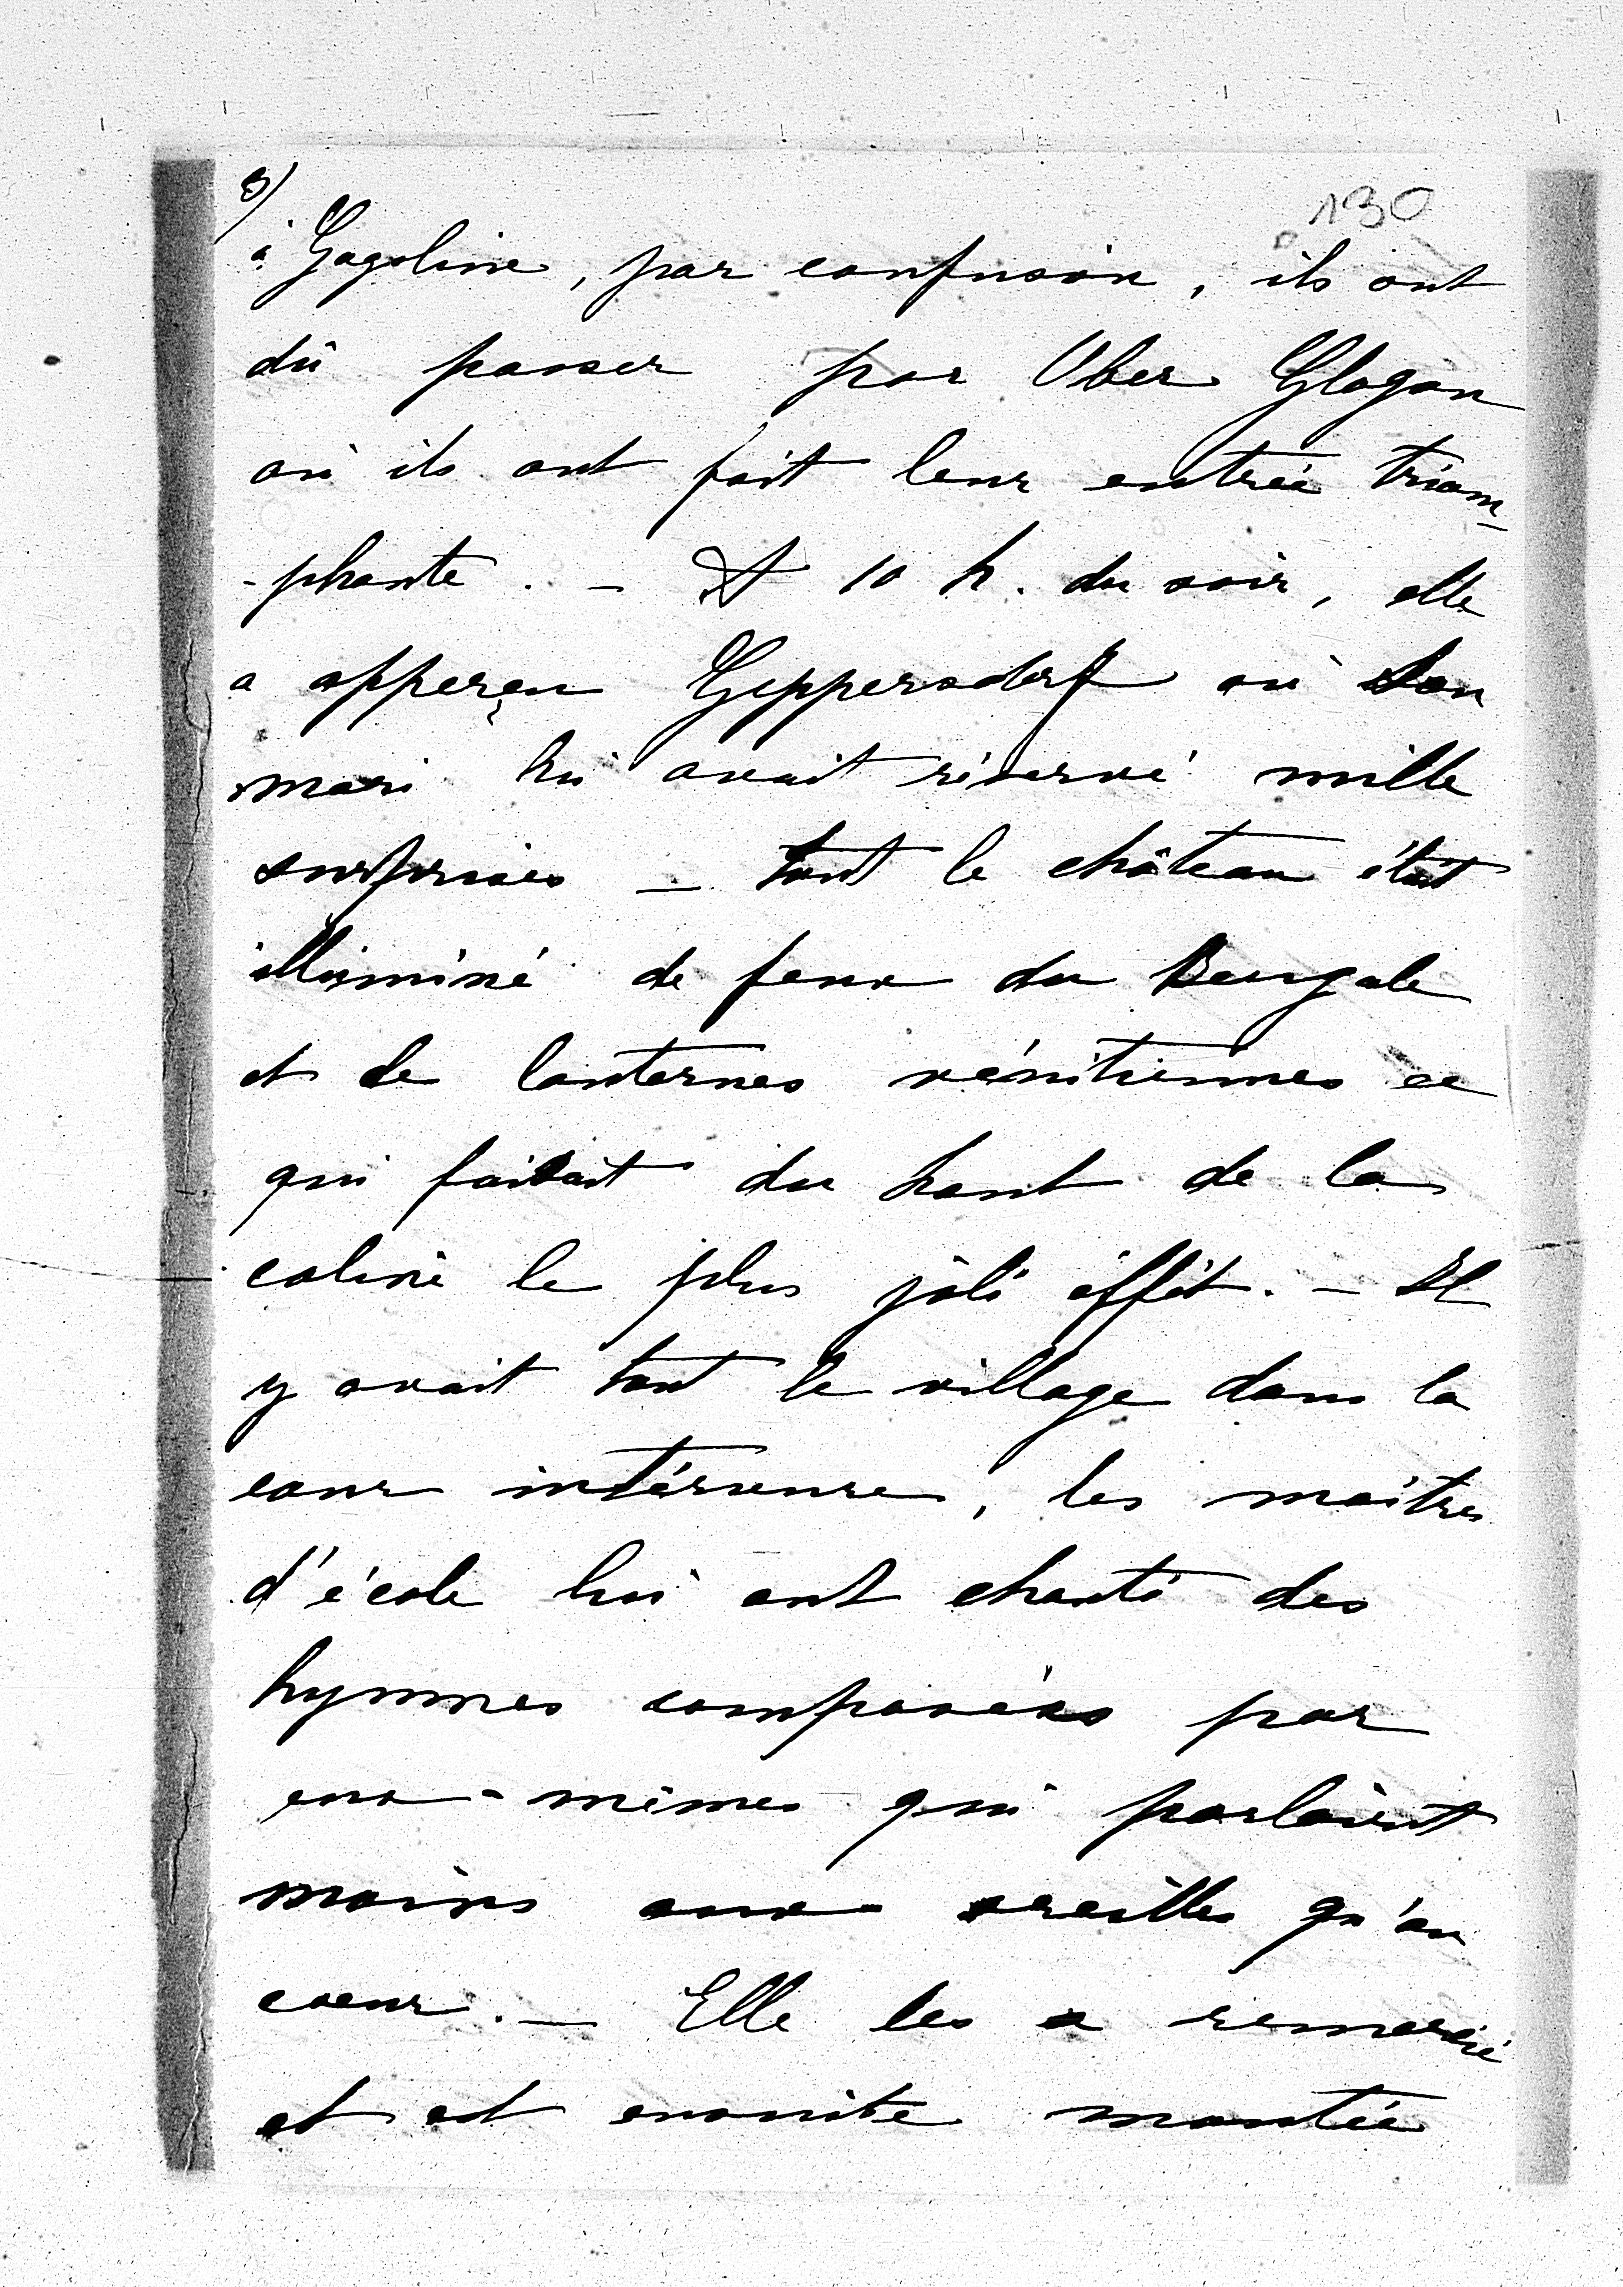 3)
130
à Gogoline, par confusion, ils ont
dû passer par Ober Glogau
où ils ont fait leur entrée triom-
-phante. - A 10 h. du soir, elle
a apperçu Geppersdorf où son
mari lui avait réservé mille
surprises - tout le château était
illuminé de feux du Bengale
et de lanternes vénitiennes ce
qui faisait du haut de la
coline le plus joli éffèt. - Il
y avait tout le village dans la
cour intérieure, les maîtres
d'école lui ont chanté des
hymnes composées par
eux-mêmes qui parlaient
moins aux oreilles qu'au
coeur. - Elle les a remercié
et est ensuite montée